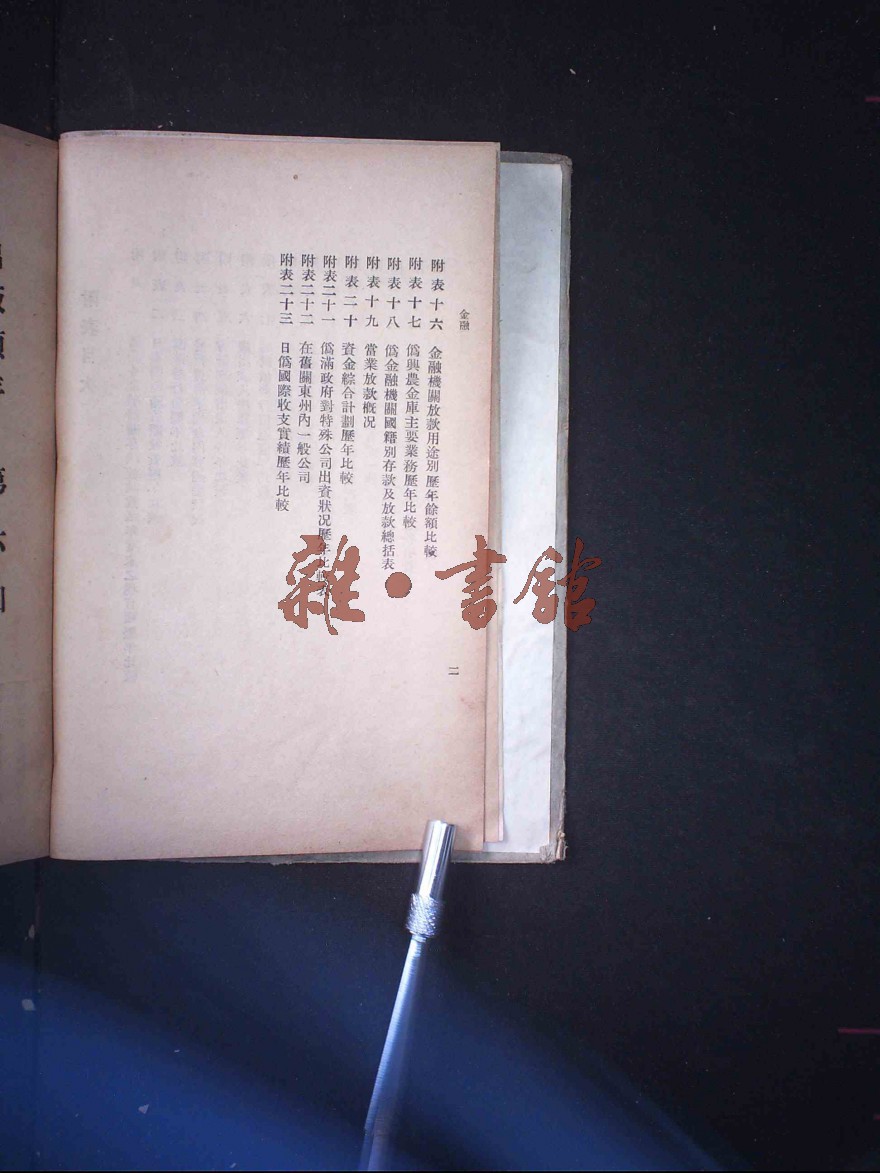 金融
附表十六 金融機關放款用途別歷年餘額比較
附表十七 僞興農金庫主要業務歷年比較
附表十八 僞金融機關國籍別存款及放款總括表
附表十九 當業放款概况
附表二十 資金綜合計劃歷年比較
附表二十一 僞滿政府對特殊公司出資狀况歷年比較
附表二十二 在舊關東州內一般公司
附表二十三 日僞國際收支實績歷年比較
二
雜·書館